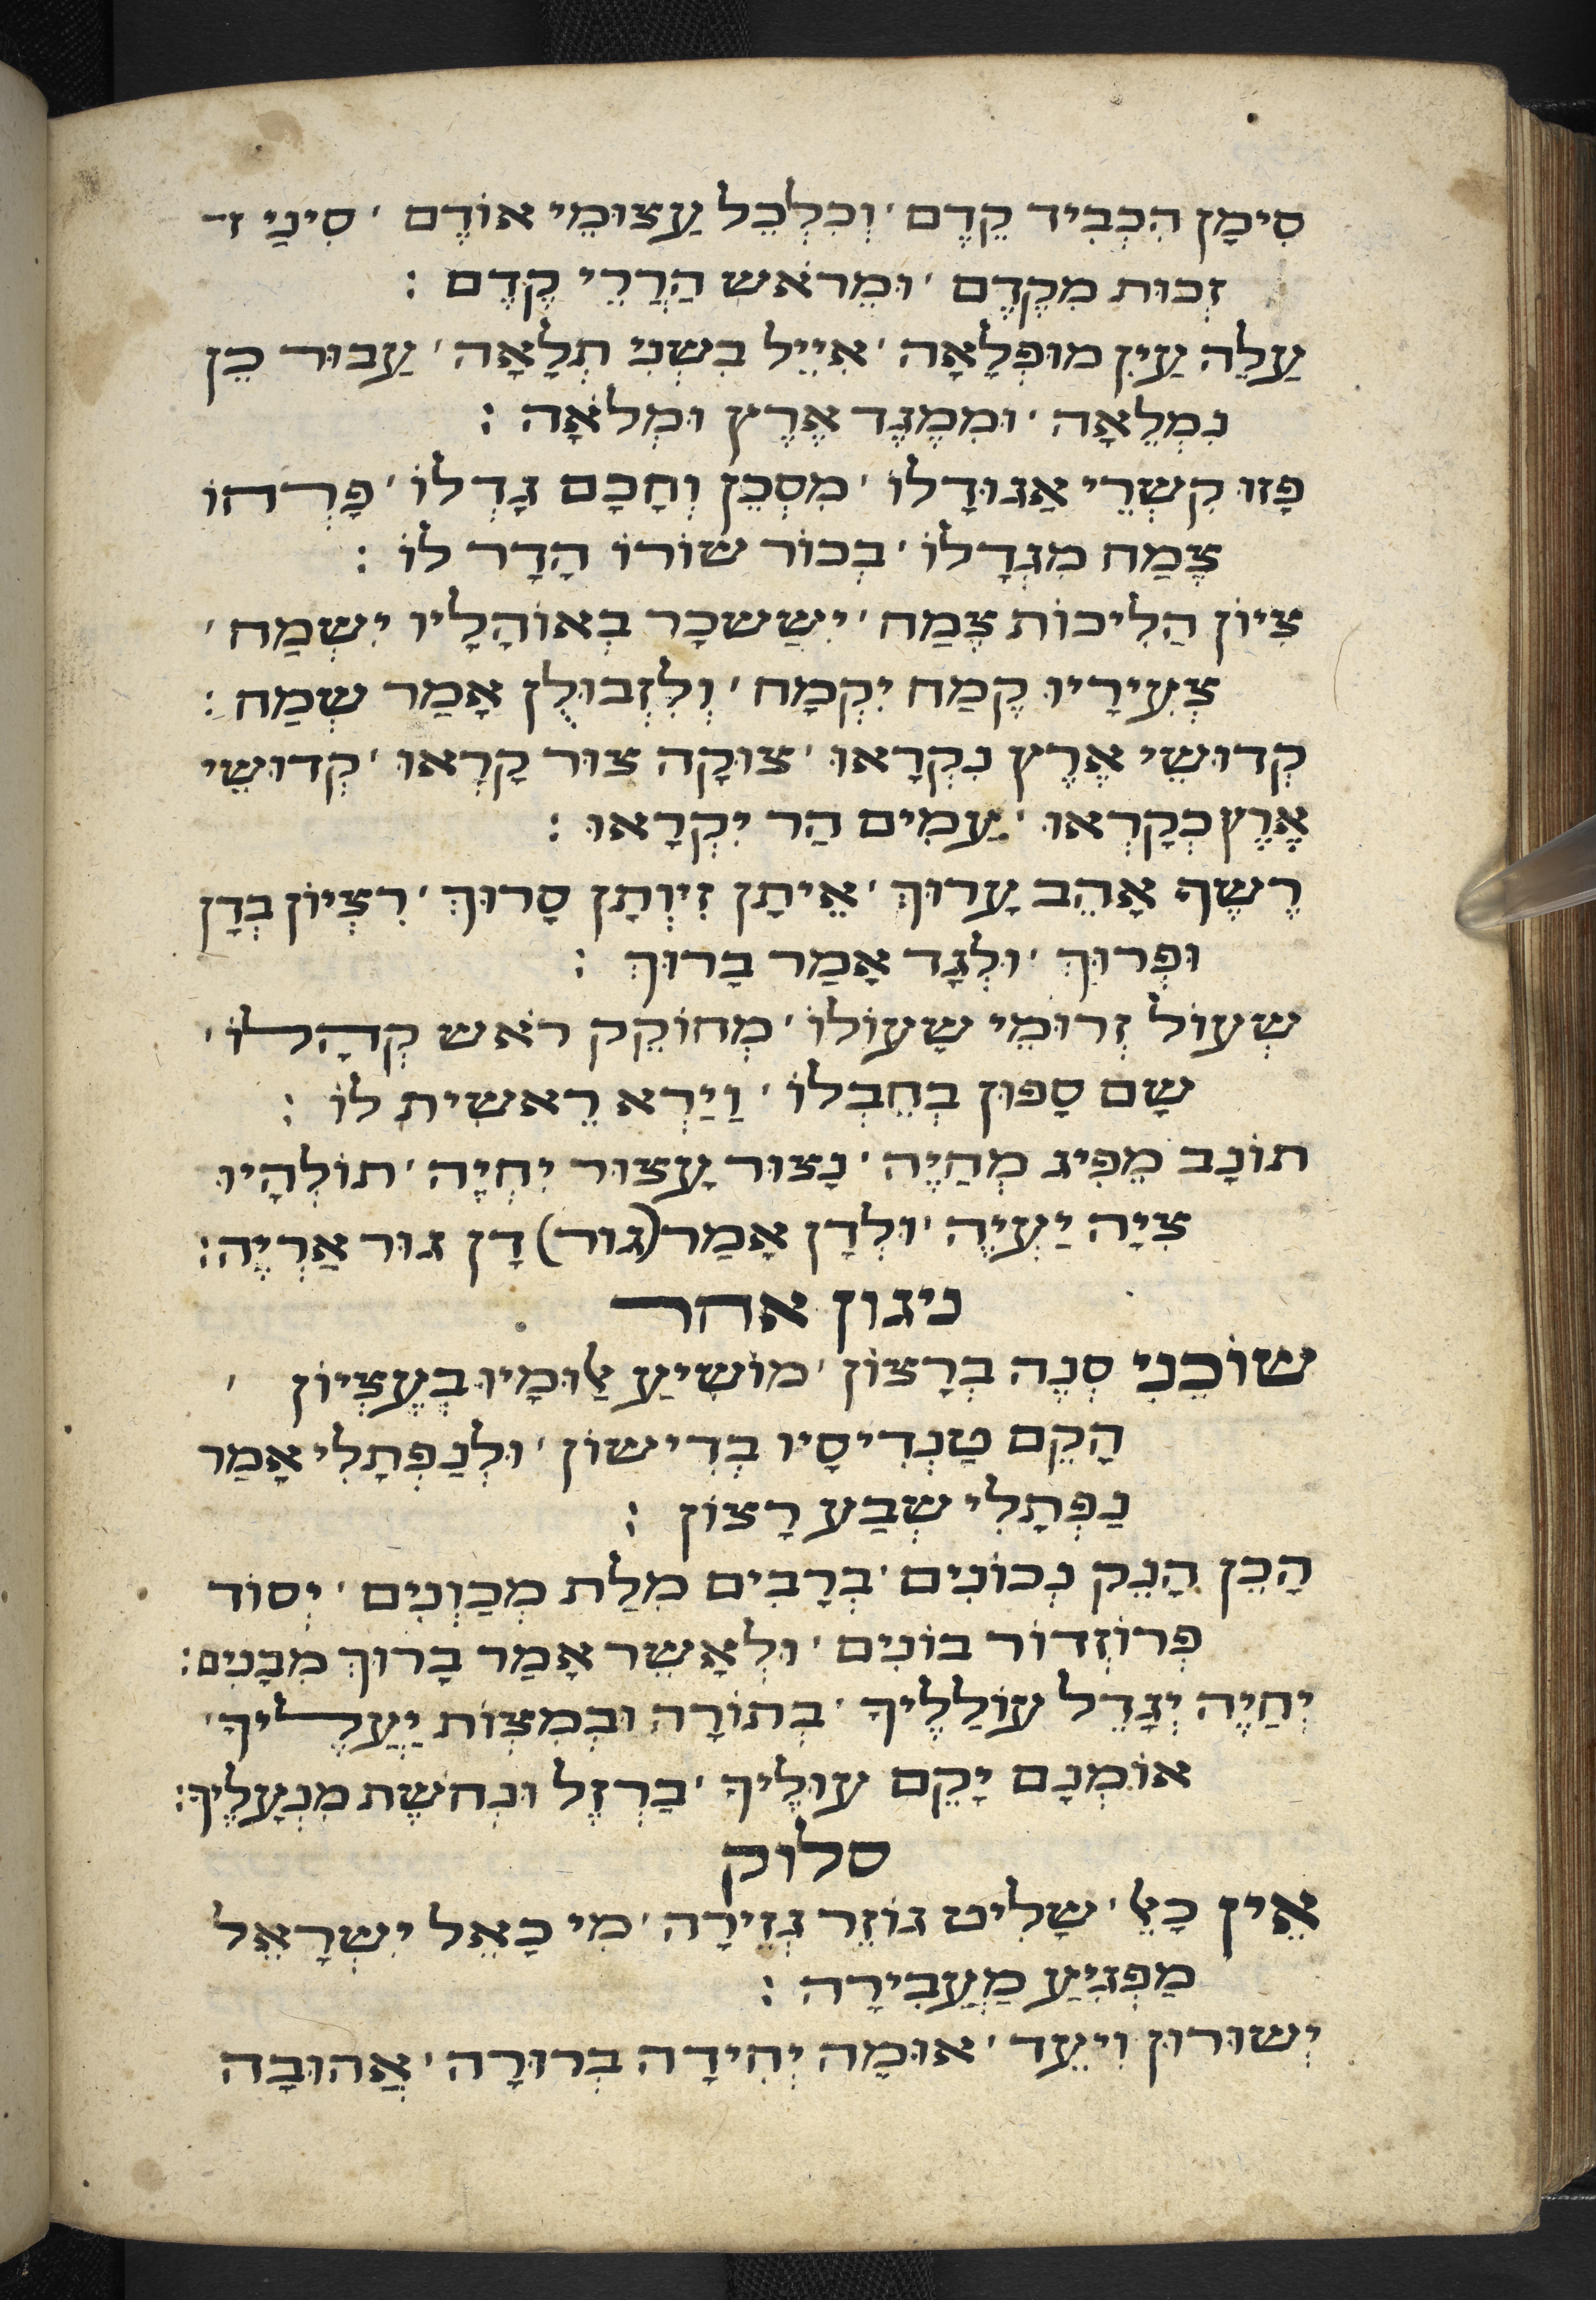 סִימָן הִכְבִיד קֵדֶם ׳ וְכִלְכֵל עַצוּמֵי אוֹדֶם ׳ סִינַי ז־
זְכוּת מִקֶדֶם ׳ וּמֵרֹאשׁ הַרֲרֵי קֶדֶם :
עַלֵה עַיִן מוּפְלָאָה ׳ אִיֵיל בִשְנִי תְלָאָה ׳ עַבוּר כֵן
נִמְלֵאָה ׳ וּמִמֶגֶד אֶרֶץ וּמְלֹאָה :
פָזוּ קִשְרֵי אַגוּדָלוֹ ׳ מִסְכֵן וְחָכָם גָדְלוֹ ׳ פָרְחוֹ
צֶמַח מִגְדָלוֹ ׳ בְכוֹר שוֹרוֹ הָדָר לוֹ :
צִיוֹן הַלִיכוֹת צֶמַח ׳ יִשַשכָר בְאוֹהָלָיו יִשְמַח ׳
צְעִירָיו קֶמַח יִקְמָח ׳ וְלִזְבוּלֻן אָמַר שְמַח :
קְדוּשֵי אֶרֶץ נִקְרָאוּ ׳ צוּקָה צוּר קָרְאוּ ׳ קְדוּשֵי
אֶרֶץ כְקָרְאוּ ׳ עַמִים הַר יִקְרָאוּ :
רֶשֶף אָהֵב עָרוּךְ ׳ אֵיתָן זִיוְתָן סָרוּךְ ׳ רִצְיוֹן בְדָן
וּפְרוּךְ ׳ וּלְגָד אָמַר בָרוּךְ :
שְעוֹל זְרוּמֵי שָעוֹלוֹ ׳ מְחוֹקֵק רֹאש קְהָלוֹ ׳
שָם סָפוּן בְחֵבְלוֹ ׳ וַיַרְא רֵאשִית לוֹ :
תוֹנָב מֵפִיג מְחַיֶה ׳ נָצוּר עָצוּר יִחְיֶה ׳ תוֹלְהָיו
צִיָה יַעְיֶה ׳ וּלְדָן אָמַר (גור) דָן גוּר אַרְיֵה :
ניגון אחר
שוֹכְנִי סְנֶה בְרָצוֹן ׳ מוֹשִיעַ אֵלוּמָיו בְעֶצְיוֹן ׳
הָקֵם טַנְדִיסָיו בְדִישוֹן ׳ וּלְנַפְתָלִי אָמַר
נַפְתָלִי שְבַע רָצוֹן :
הָכֵן הָנֵק נְכוֹנִים ׳ בְרָבִים מִלַת מְכַוְנִים ׳ יְסוֹד
פְרוֹזְדוֹר בוֹנִים ׳ וּלְאָשֵר אָמַר בָרוּךְ מִבָנִים :
יְחַיֶה יְגָדֵל עוֹלַלֶיךָ ׳ בְתוֹרָה וּבְמִצְוֹת יַעֲלֶיךָ ׳
אוֹמְנָם יָקֵם עוּלֶיךָ ׳ בַרְזֶל וּנְחֹשֶת מִנְעָלֶיךָ :
סלוק
אֵין כָאֵל ׳ שָלִיט גוֹזֵר גְזֵירָה ׳ מִי כָאֵל יִשְרָאֵל
מַפְגִיעַ מַעֲבִירָה :
יְשוּרוּן וִיעֵד ׳ אוּמָה יְחִידָה בְרוּרָה ׳ אֲהוּבָה